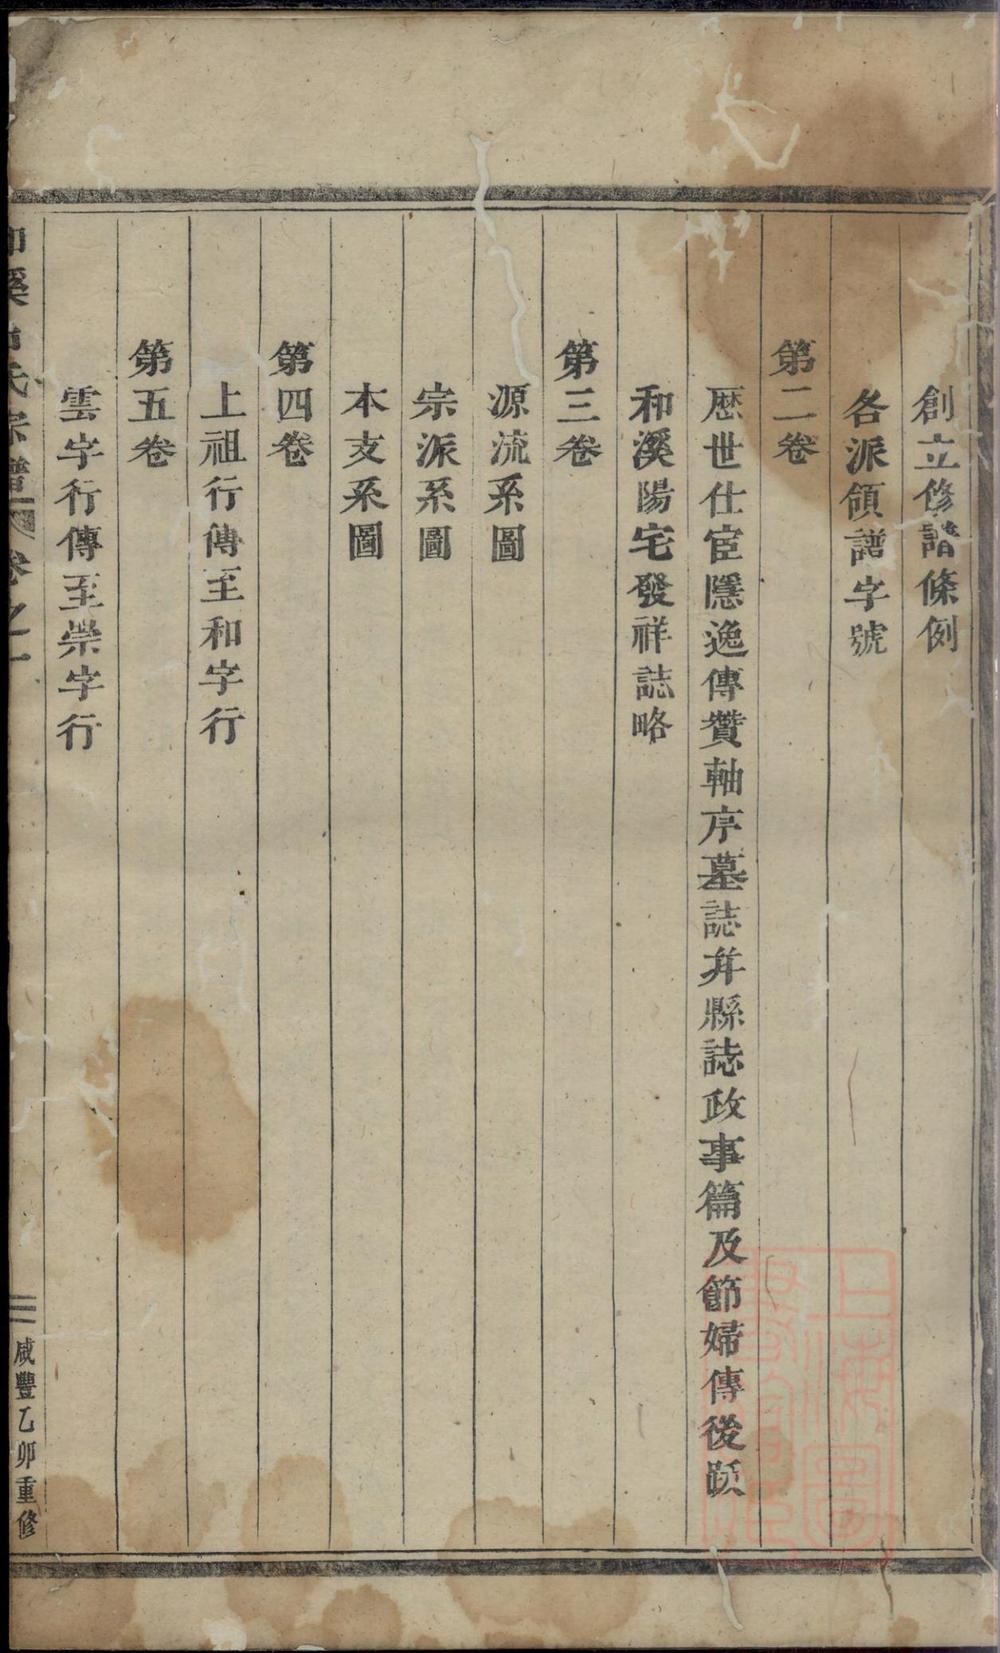 創立修譜條例
各派領譜字號
第二卷
歷世仕宦隱逸傳贊軸序墓誌并縣誌政事篇及節婦傳後跋
和溪陽宅發祥誌略
第三卷
源流系圖
宗派系圖
本支系圖
第四卷
上祖行傳至和字行
第五卷
雲字行傳至崇字行
溪
氏宗譜 卷之一
三 咸豐乙卯重修
上海圖